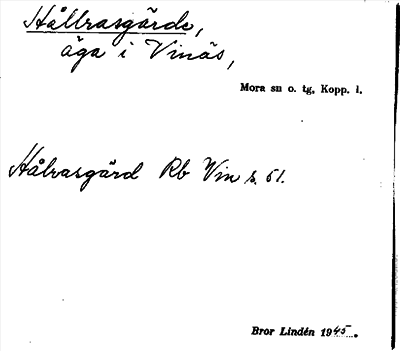 Hållrasgärde,
äga i Vinäs,
Mora sn o. tg, Kopp. l.
Hålrasgärd Rb Vin s. 61.
Bror Lindén 1945.